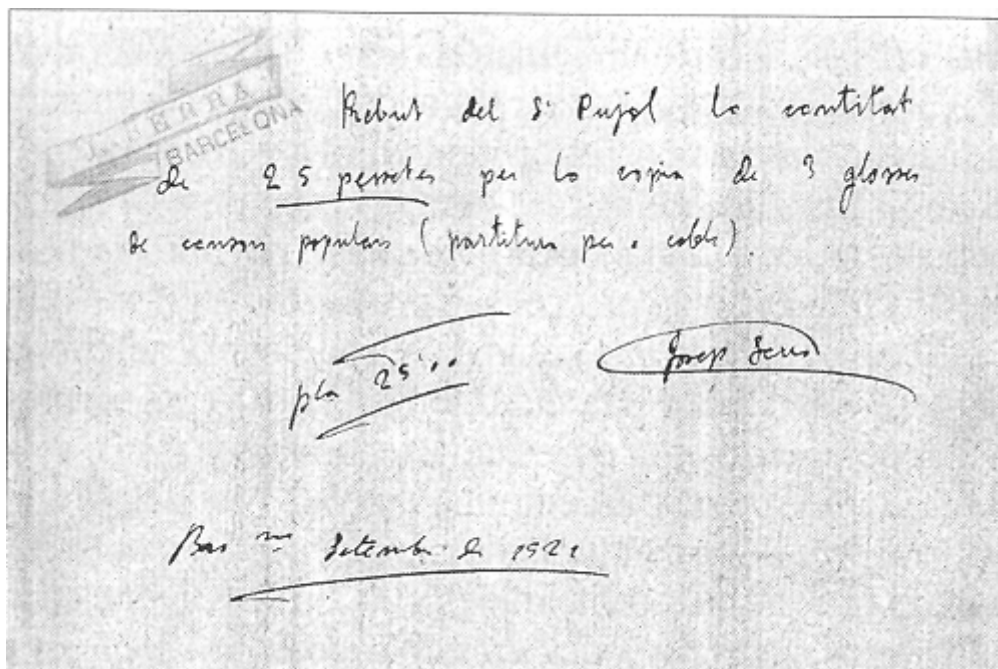 J. SERRA
BARCELONA
Rebut del Sr Pujol la cantitat
de 25 pessetes per la copia de 3 glosses
de cansons populars (partitura per a cobla).
pta 25'00
Josep Serra
Setembre de 1921